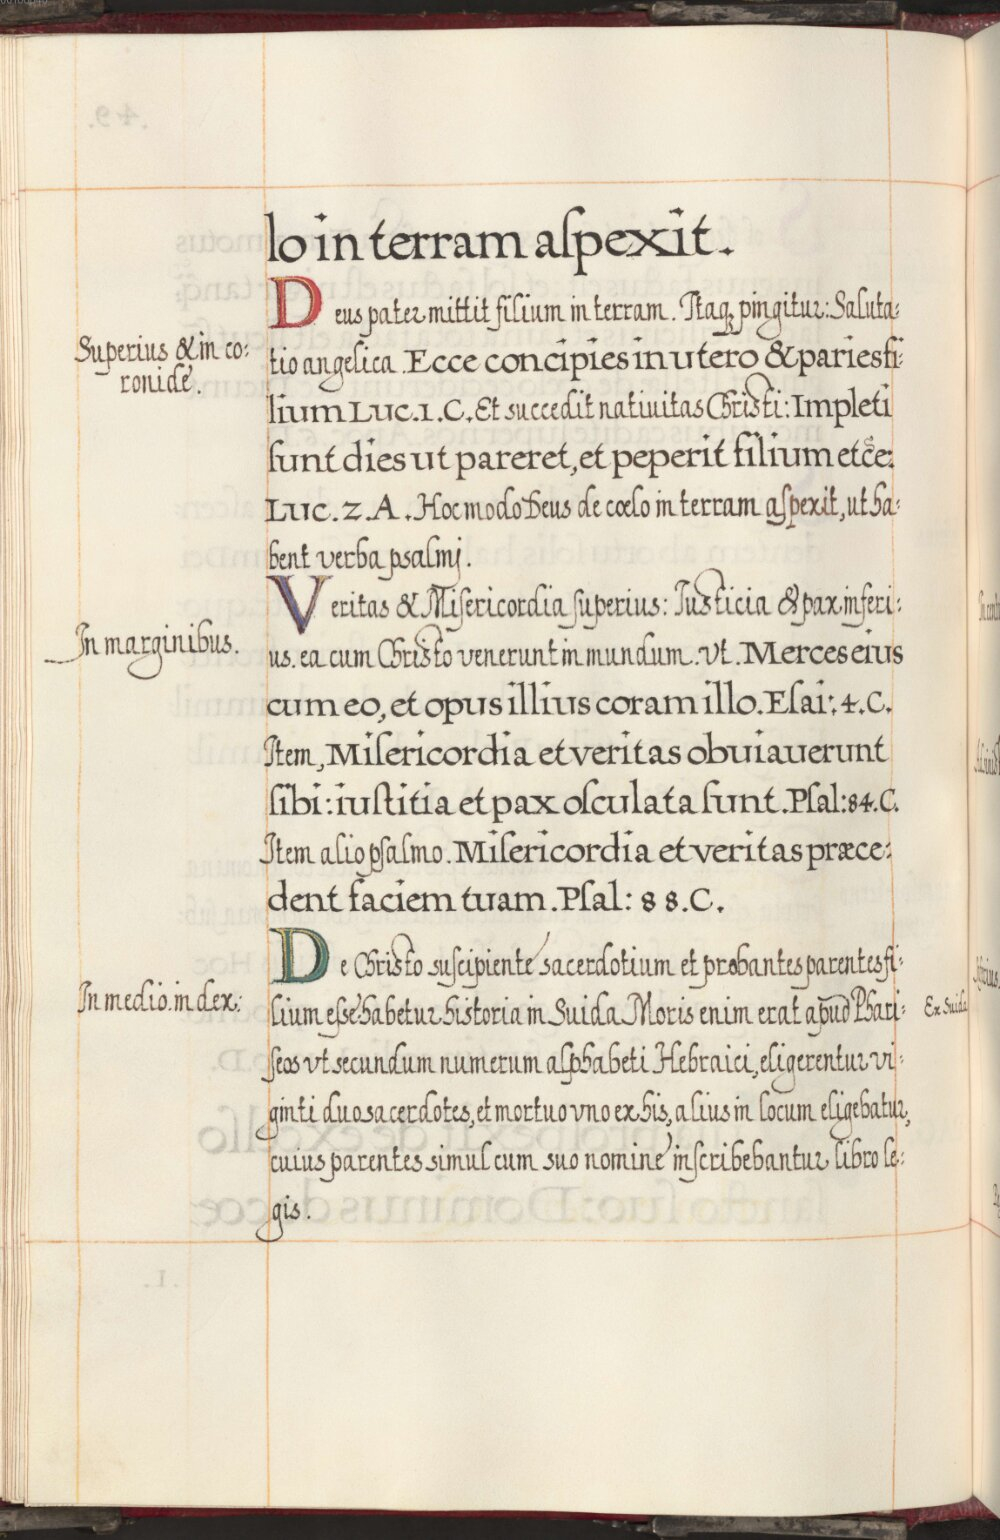 lo in terram aſpexit.
Deus pater mittit filium in terram. Itaq; pingitur: Saluta-
Superius & in co:
ronide.
tio angelica. Ecce concipies in utero & paries fi-
lium Luc. 1. C. Et succedit natiuitas Christi: Impleti
sunt dies ut pareret, et peperit filium etc̃e:
Luc. 2. A. Hoc modo Deus de cœlo in terram aſpexit, ut ha-
bent verba psalmj.
Veritas & Miſericordia superius: Iusticia & pax inferi-
In marginibus.
us. ea cum Christo venerunt in mundum. vt. Merces eius
cum eo, et opus illius coram illo. Eſai: 4. C.
Item, Miſericordia et veritas obuiauerunt
ſibi: iuſtitia et pax oſculata ſunt. Pſal: 84. C.
Item alio pſalmo. Miſericordia et veritas præce-
dent faciem tuam. Pſal: 88. C.
De Christo suſcipiente sacerdotium et probantes parentes fi-
In medio. index:
lium eſſe habetur historia in Suida Moris enim erat apud Phari-
Ex Suida
ſeos vt secundum numerum alphabeti Hebraici, eligerentur vi-
ginti duo sacerdotes, et mortuo vno ex his, alius in locum eligebatur,
cuius parentes simul cum suo nomine inſcribebantur libro le-
gis.